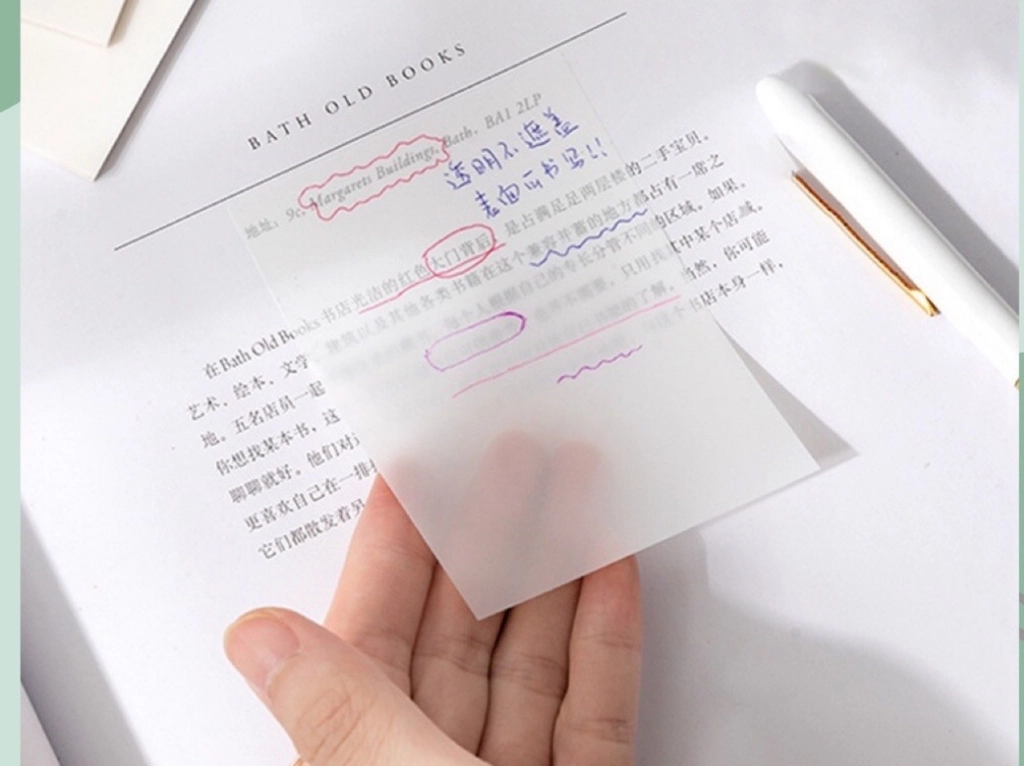 BATH OLD BOOKS
地址：9c, Margarets Buildings, Bath, BA1 2LP
透明不遮盖
表面可书写!!
在Bath Old Books书店光洁的红色大门背后，是占满足足两层楼的二手宝贝。
艺术、绘本、文学、建筑以及其他各类书籍在这个兼容并蓄的地方都占有一席之
地。五名店员一起 每个人根据自己的专长分管不同的区域。如果
你想找某本书，这 只用找 其中某个店
聊聊就好。他们对 的了解。当然，你可能
更喜欢自己在一排 书店本身一样，
它们都散发着